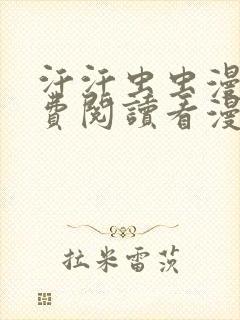 汗汗虫虫漫
費閱讀看漫
拉米雷茨